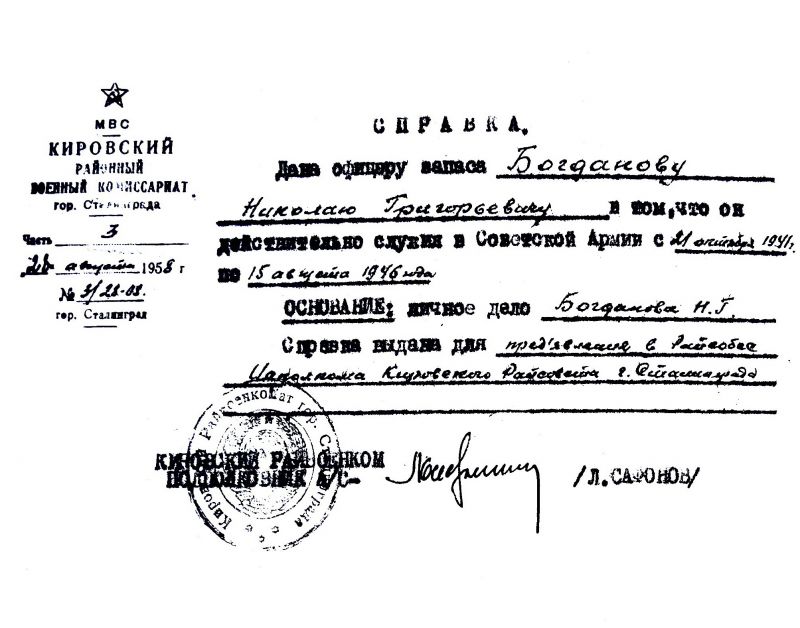 МВС
КИРОВСКИЙ
РАЙОННЫЙ
ВОЕННЫЙ КОМИССАРИАТ
гор. Сталинграда
Часть 3
"28" августа 1958 г
№ 3/28-08.
гор. Сталинград
СПРАВКА.
Дана офицеру запаса Богданову
Николаю Григорьевичу в том, что он
действительно служил в Советской Армии с 21 октября 1941г.
по 15 августа 1946 года
ОСНОВАНИЕ: личное дело Богданова Н.Г.
Справка выдана для пред'явления в Райсобес
Исполкома Кировского Райсовета г. Сталинграда
КИРОВСКИЙ РАЙВОЕНКОМ
ПОДПОЛКОВНИК А/С-
/Л.САФОНОВ/
Кировский Райвоенкомат гор. Сталинграда